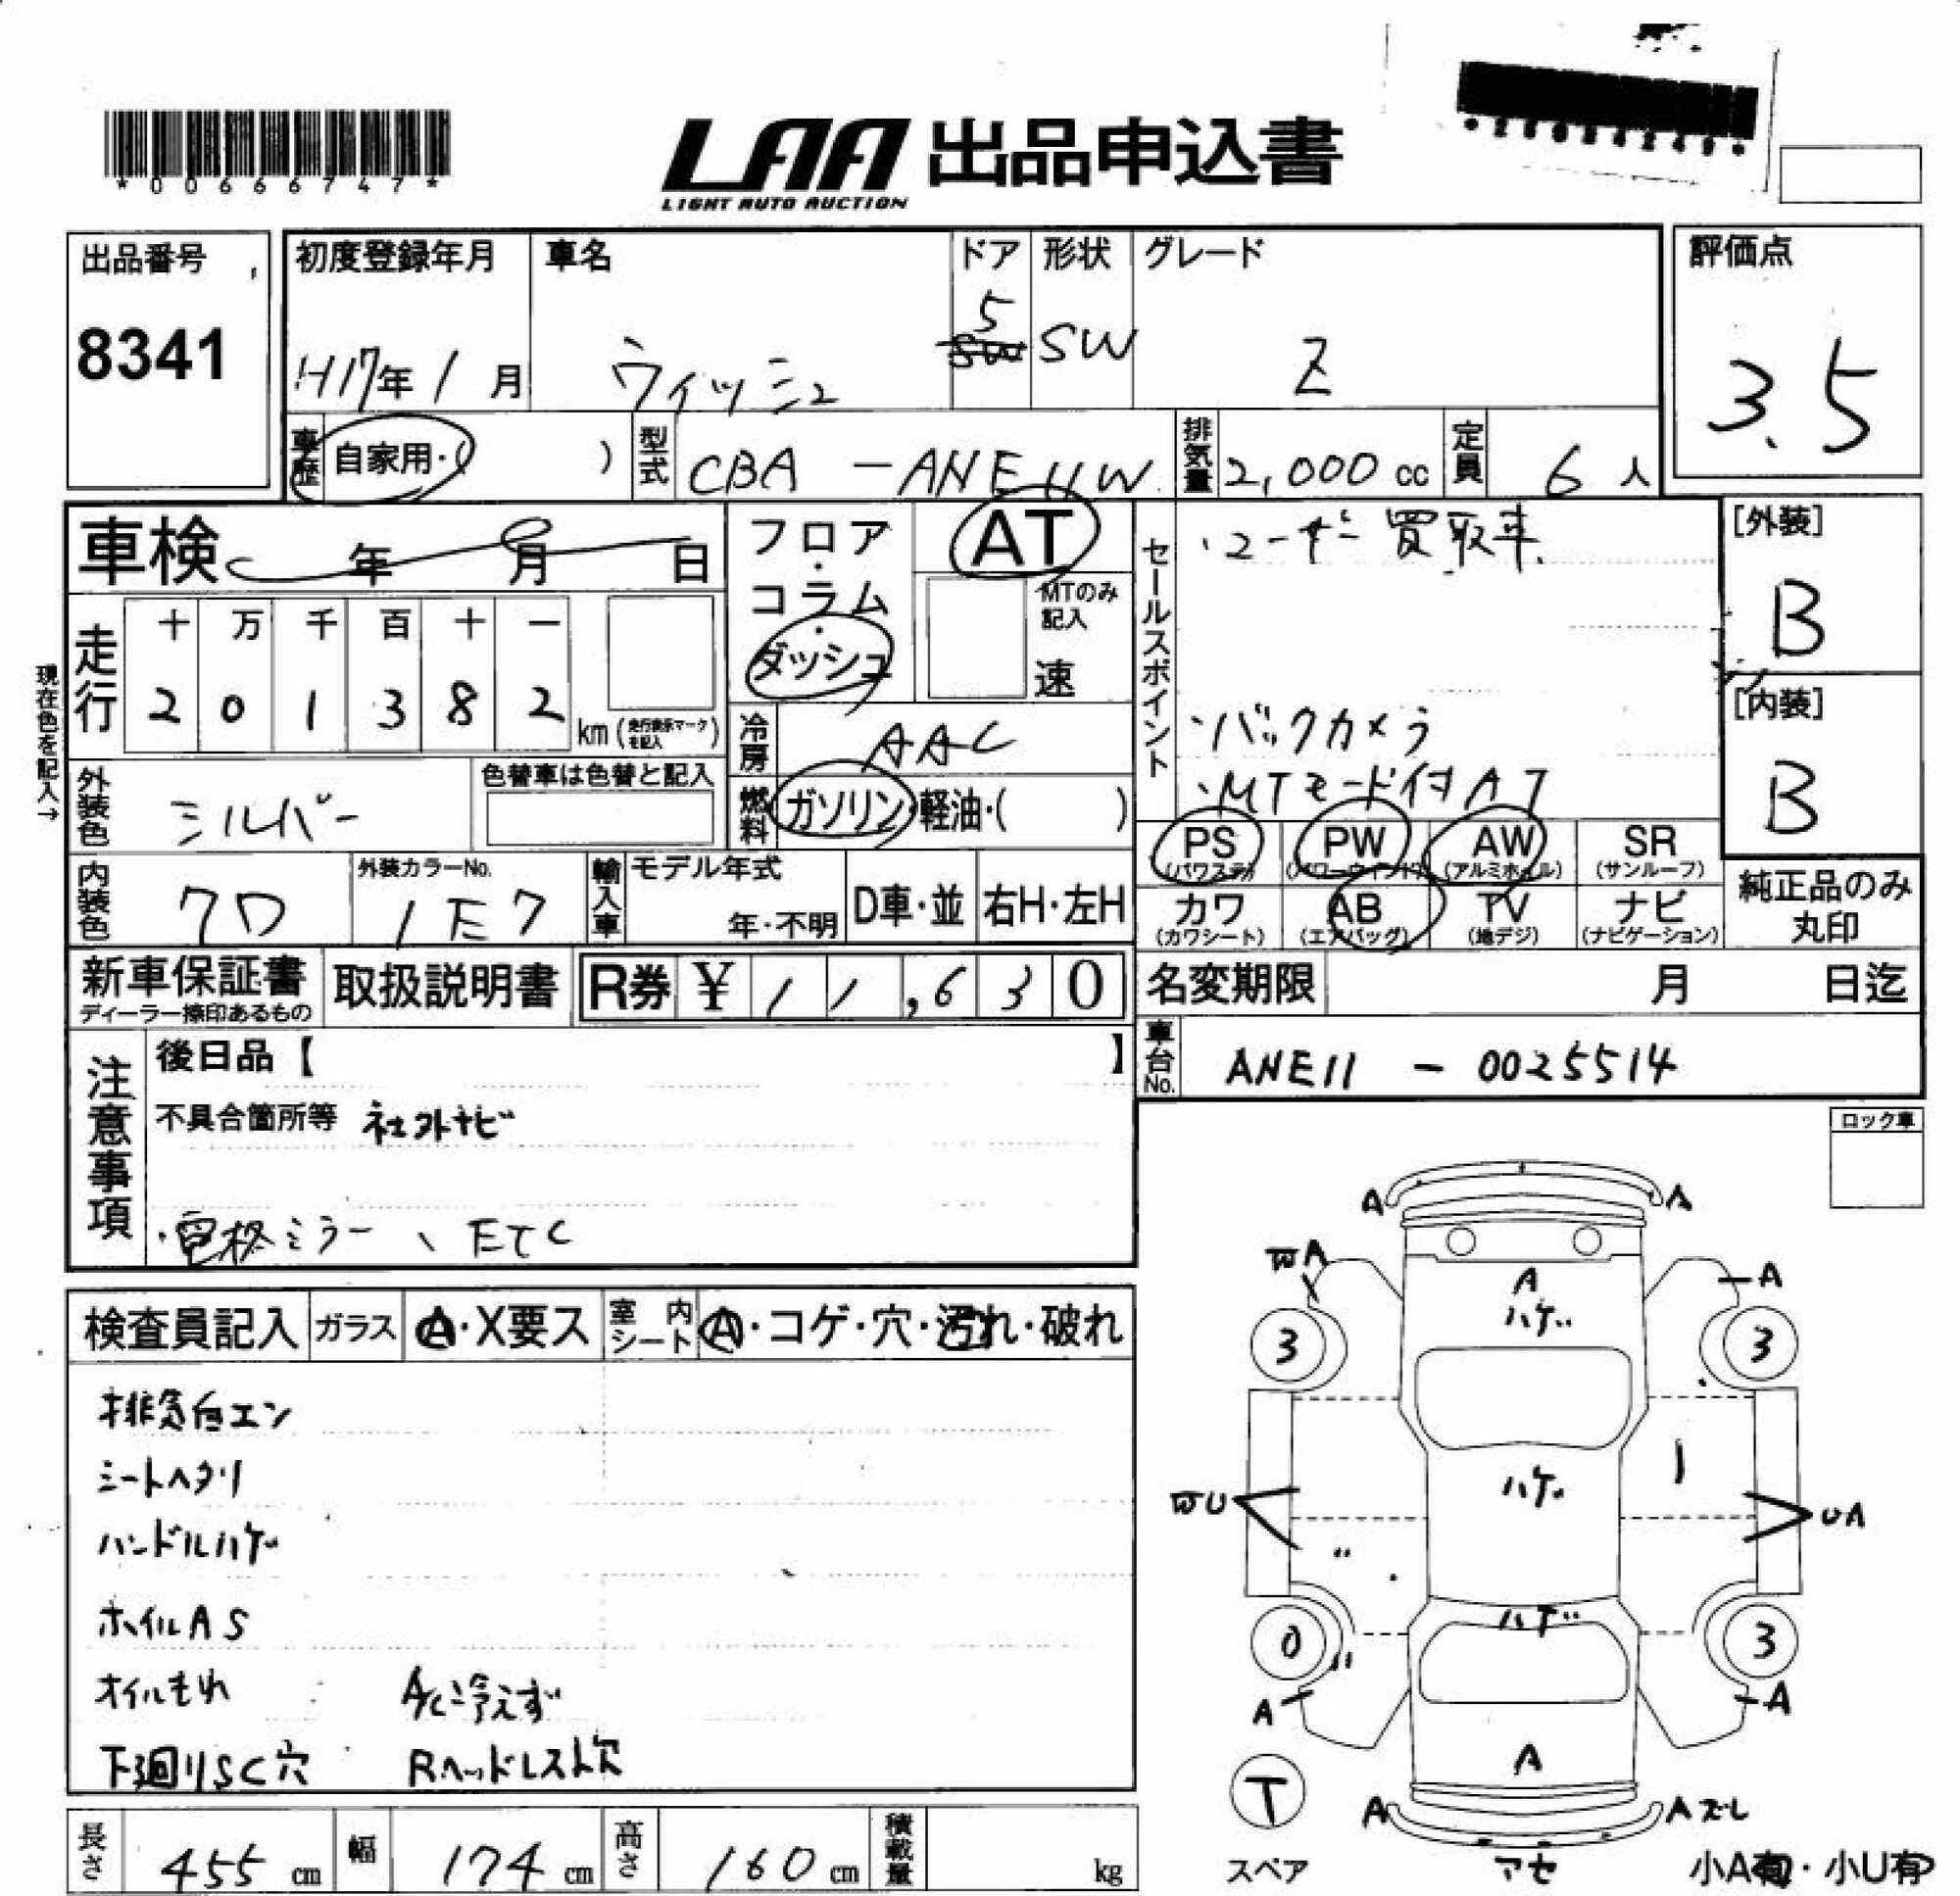 *00666747*
LAA 出品申込書
LIGHT AUTO AUCTION
出品番号
8341
初度登録年月
H17年1月
車名
ウィッシュ
ドア
5
形状
SW
グレード
Z
評価点
3.5
車歴
自家用・( )
型式
CBA -ANE11W
排気量
2,000 cc
定員
6人
車検 年 月 日
フロア・コラム・ダッシュ
AT
MTのみ記入
速
セールスポイント
・ユーザー買取車
・バックカメラ
・MTモード付AT
[外装]
B
[内装]
B
現在色を記入→
走行
十 万 千 百 十 一
2 0 1 3 8 2 km (走行表示マークを記入)
冷房
AAC
外装色
シルバー
色替車は色替と記入
燃料
ガソリン・軽油・( )
PS (パワステ)
PW (パワーウィンド)
AW (アルミホイル)
SR (サンルーフ)
カワ (カワシート)
AB (エアバッグ)
TV (地デジ)
ナビ (ナビゲーション)
純正品のみ丸印
内装色
クロ
外装カラーNo.
1E7
輸入車
モデル年式
年・不明
D車・並
右H・左H
新車保証書
ディーラー捺印あるもの
取扱説明書
R券 ¥ 11,630
名変期限 月 日迄
車台No.
ANE11 - 0025514
注意事項
後日品【 】
不具合箇所等 社外ナビ
・電格ミラー、ETC
ロック車
検査員記入
ガラス
A・X要ス
室内シート
A・コゲ・穴・汚れ・破れ
排気白エン
シートヘタリ
ハンドルハゲ
ホイルAS
オイルもれ A/C冷えず
下廻りSC穴 Rヘッドレスト欠
A A
A A
A
ハゲ
3 3
ハゲ
U UA
ハゲ
0 3
A A
A
T
スペア
A Aズレ
アセ
小A有・小U有
長さ
455 cm
幅
174 cm
高さ
160 cm
積載量
kg